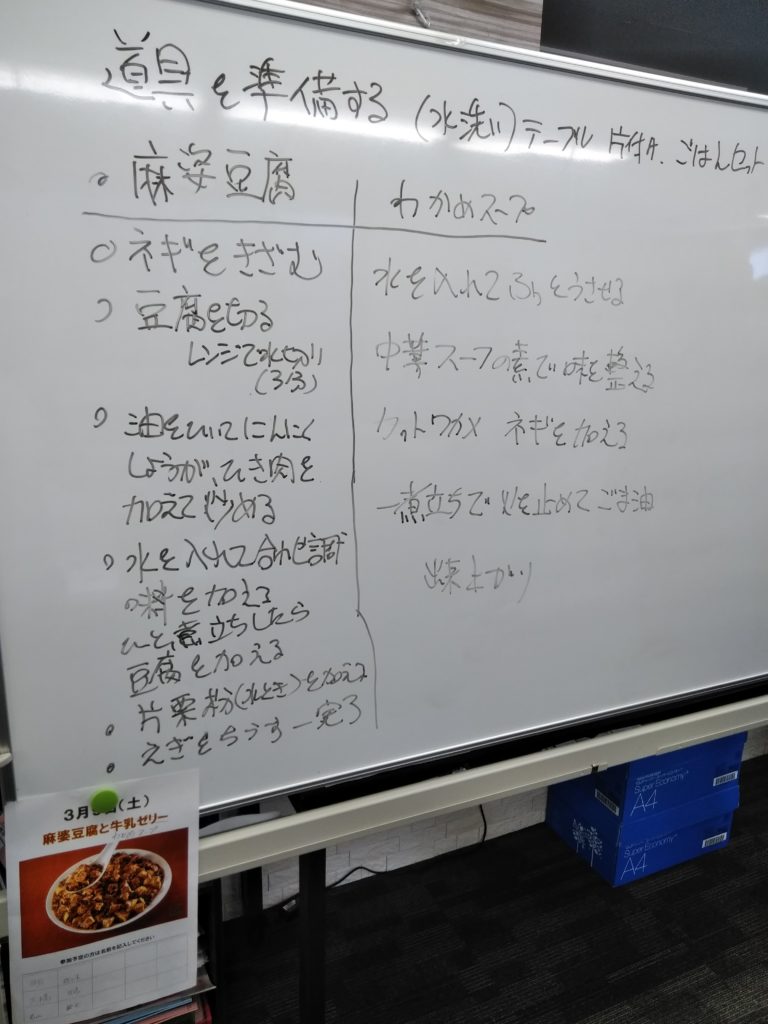 道具を準備する (水洗い) テーブル 片付け、ごはんセット
麻婆豆腐
ネギをきざむ
豆腐を切る
レンジで水切り
(3分)
油をひいてにんにく
しょうが、ひき肉を
加えて炒める
水を入れて合わせ調
味料を加える
ひと煮立ちしたら
豆腐を加える
片栗粉(水とき)を加える
ねぎをちらす―完了
わかめスープ
水を入れてふっとうさせる
中華スープの素で味を整える
カットワカメ ネギを加える
一煮立ちで火を止めてごま油
出来上がり
3月 日(土)
麻婆豆腐と牛乳ゼリー
参加予定の方は名前を記入してください
Super Economy+
A4
Super Economy+
A4